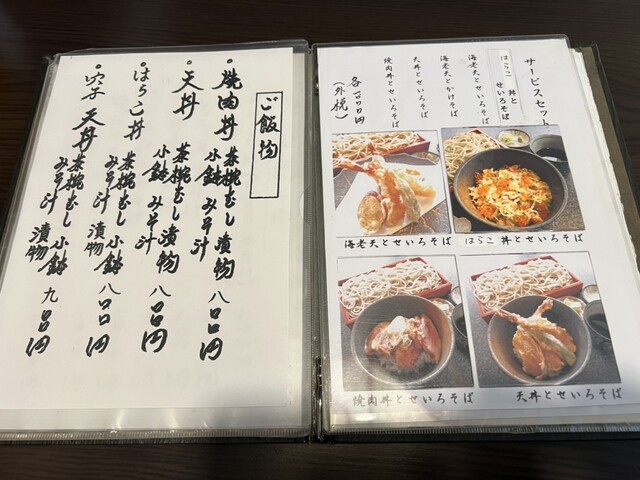 ご飯物
• 焼肉丼 茶椀むし 漬物 小鉢 みそ汁 八〇〇円
• 天丼 茶椀むし 漬物 小鉢 みそ汁 八〇〇円
• はらこ丼 茶椀むし 小鉢 みそ汁 漬物 八〇〇円
• 穴子天丼 茶椀むし 小鉢 みそ汁 漬物 九〇〇円
サービスセット
はらこ丼とせいろそば
海老天とせいろそば
海老天とかけそば
天丼とせいろそば
焼肉丼とせいろそば
各一〇〇〇円
(外税)
海老天とせいろそば
はらこ丼とせいろそば
焼肉丼とせいろそば
天丼とせいろそば